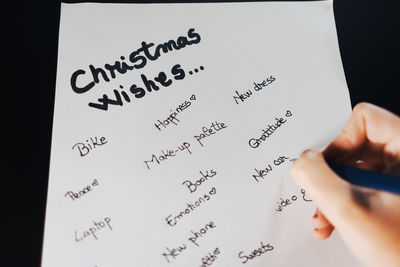 Christmas
Wishes...
Bike
Peace ♡
Laptop
Happiness ♡
Make-up palette
Books
Emotions ♡
New phone
New dress
Gratitude ♡
New car
video
Sweets